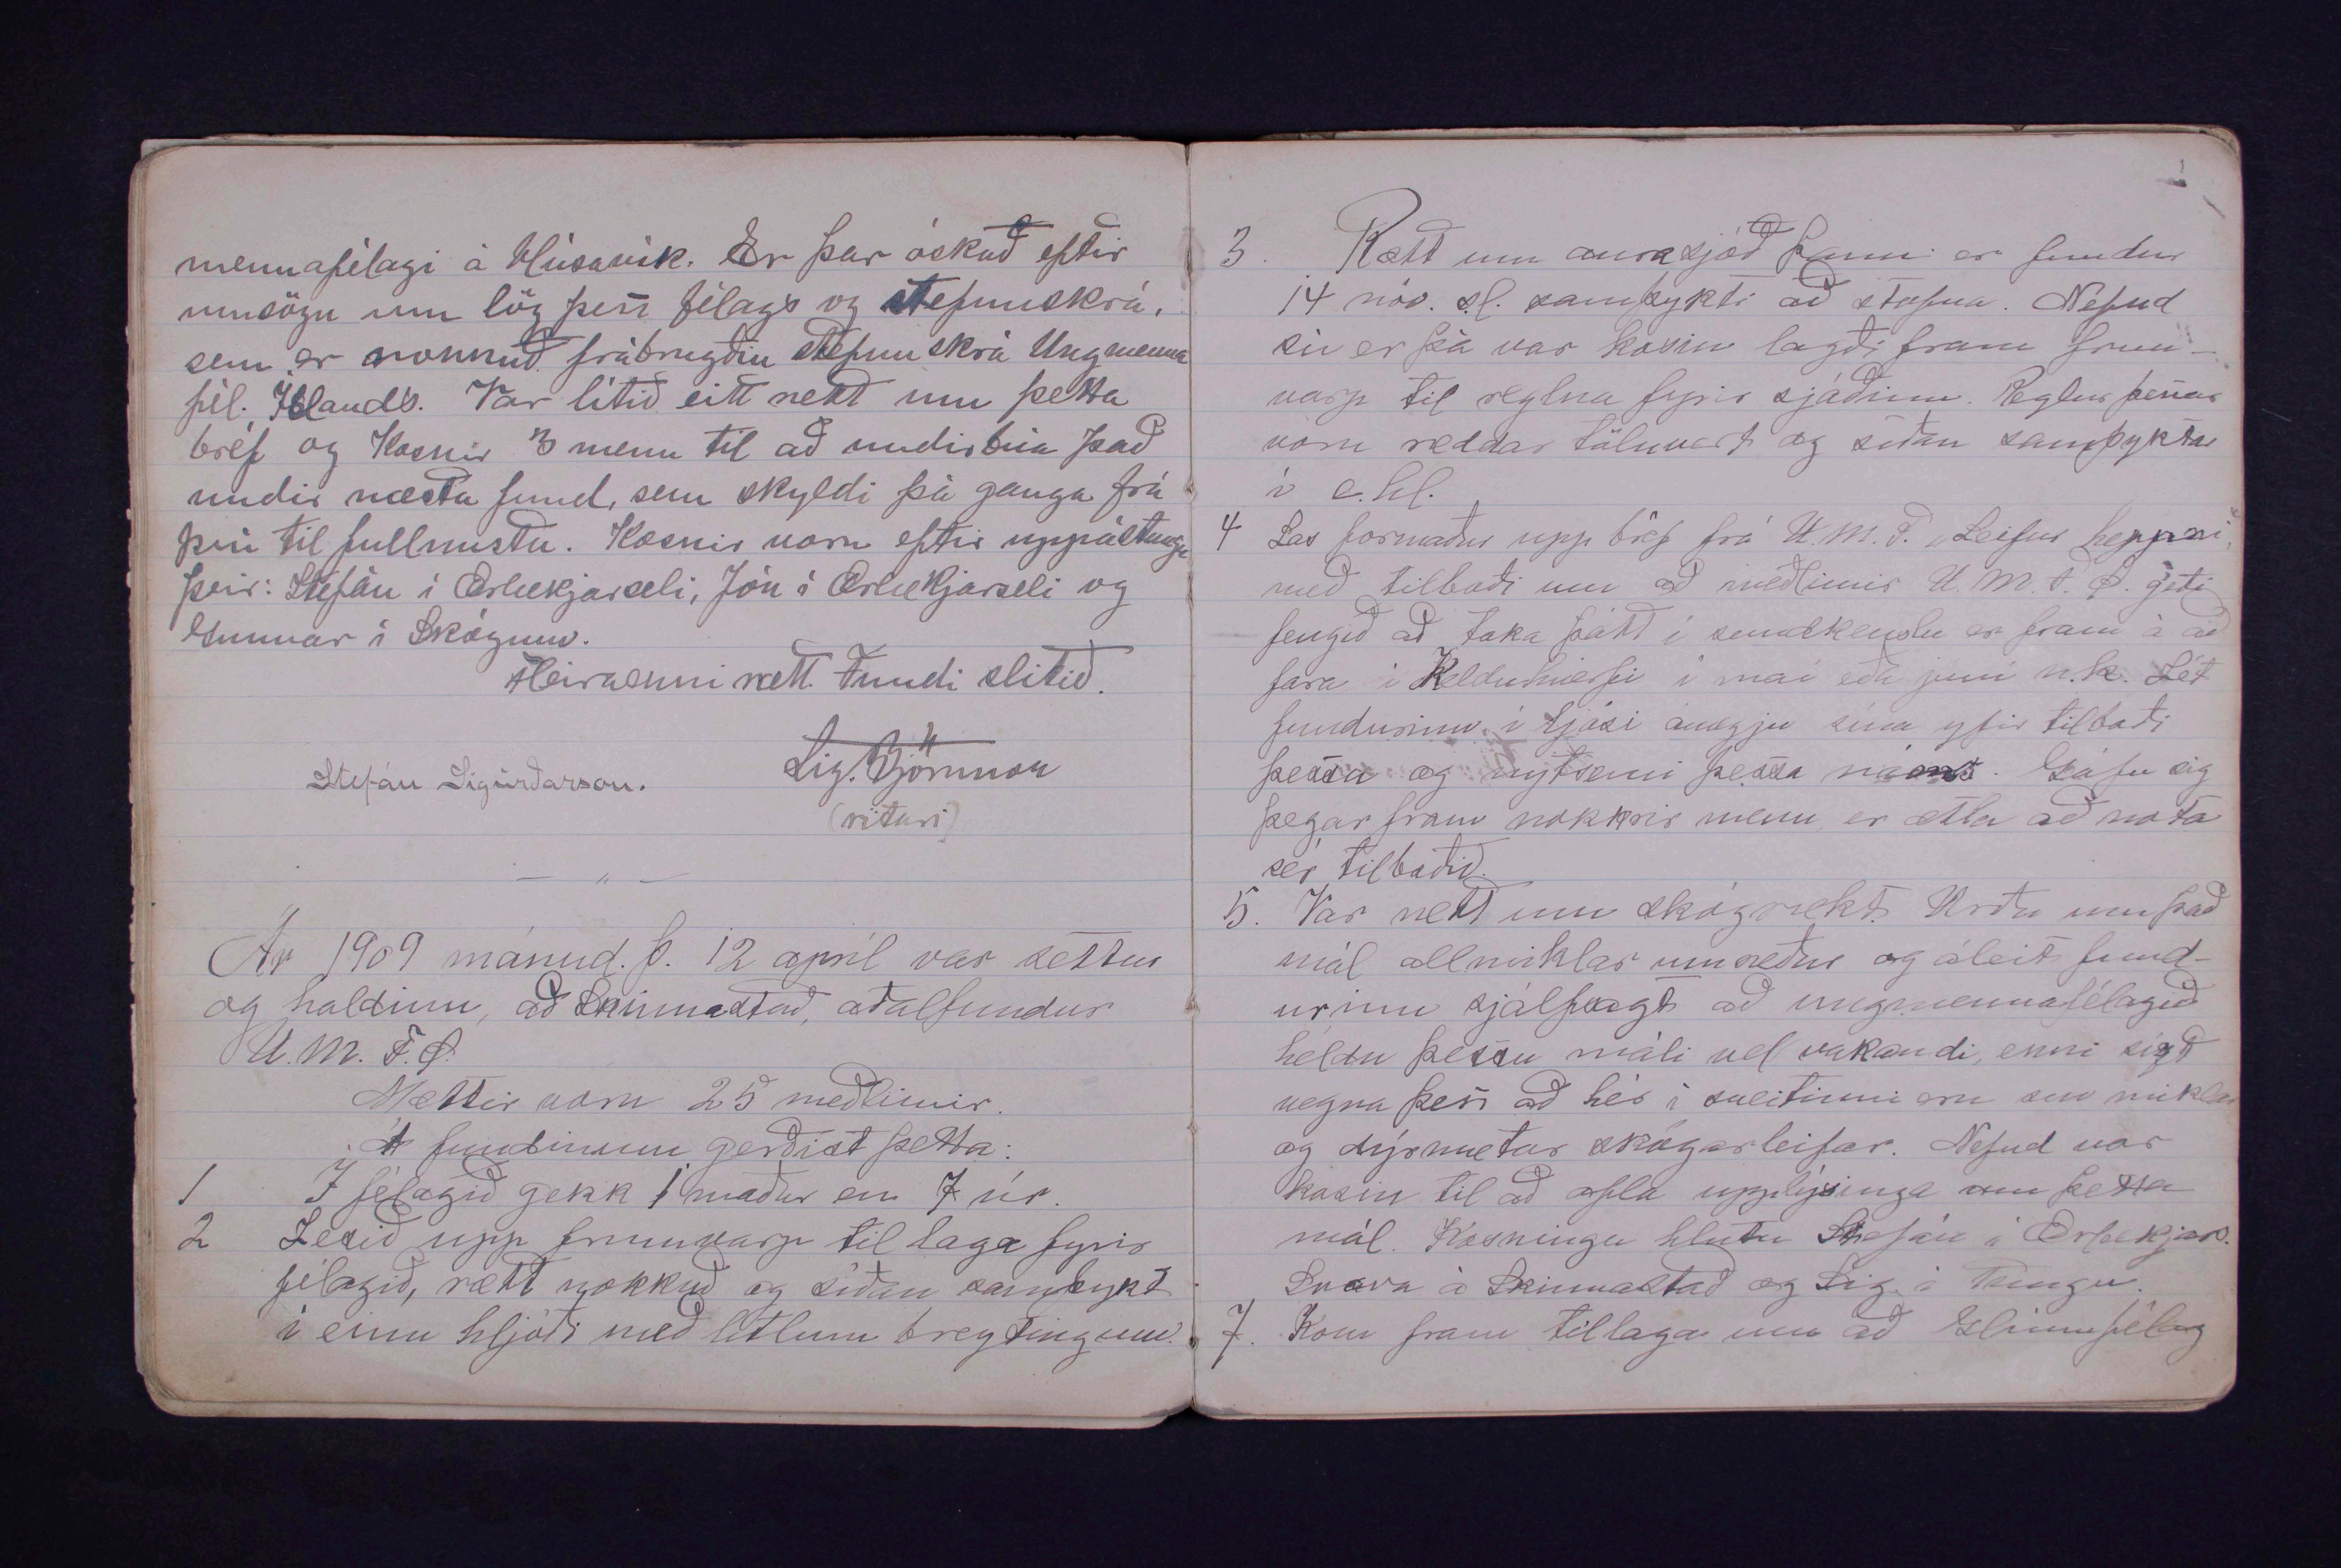 mennafélagi á Húsavík. Er þar óskað eftir
umsögn um lög þess félags og stefnuskrá,
sem er nokkuð frábrugðin stefnuskrá Ungmenna
fél. Íslands. Var lítið eitt rætt um þetta
bréf og Kosnir 3 menn til að undirbúa það
undir næsta fund, sem skyldi þá ganga frá
því til fullnustu. Kosnir voru eftir uppástungu
þeir: Stefán í Ærlækjarseli, Jón í Ærlækjarseli og
Gunnar í Skógum.
Fleira enni rætt. Fundi slitið.
Stefán Sigurðarson.
Sig. Björnsson
(ritari)
— " —
Ár 1909 mánud. þ. 12 apríl var settur
og haldinn, að Skinnastað, aðalfundur
U.M.F.Ö.
Mættir voru 25 meðlimir.
Á fundinum gerðist þetta:
1 Í félagið gekk 1 maður en 7 úr.
2 Lesið upp frumvarp til laga fyrir
félagið, rætt nokkuð og síðan samþykt
í einu hljóði með litlum breytingum.
3. Rætt um aurasjóð þann er fundur
14 nóv. s.l. samþykti að stofna. Nefnd
sú er þá var kosin lagði fram frum-
varp til reglna fyrir sjóðinn. Reglur þessar
voru ræddar töluvert og síðan samþyktar
í e.hl.
4 Las formaður upp bréf frá U.M.F. „Leifur heppni"
með tilboði um að meðlimir U.M.F.Ö. geti
fengið að taka þátt í sundkenslu er fram á að
fara í Kelduhverfi í maí eða júní n.k. Lét
fundurinn í ljósi ánægju sína yfir tilboði
þessu og nytsemi þessa náms. Gáfu sig
þegar fram nokkrir menn er ætla að nota
sér tilboðið.
5. Var rætt um skógrækt. Urðu um það
mál allmiklar umræður og áleit fund-
urinn sjálfsagt að ungmennafélagið
héldu þessu máli vel vakandi, enni sízt
vegna þess að hér í sveitinni eru svo miklar
og dýrmætar skógarleifar. Nefnd var
kosin til að afla upplýsinga um þetta
mál. Kosningu hlutu Stefán í Ærlækjars.
Svava á Skinnastað og Sig. í Tungu.
7. Kom fram tillaga um að Glímufélag